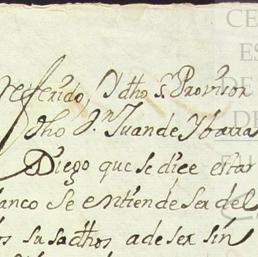 referido, Y dho Sr. Provisor
dho Dn. Juan de Ybarra
Diego que se dice estar
lanco se entiende ser del
os susodhos a de ser sin